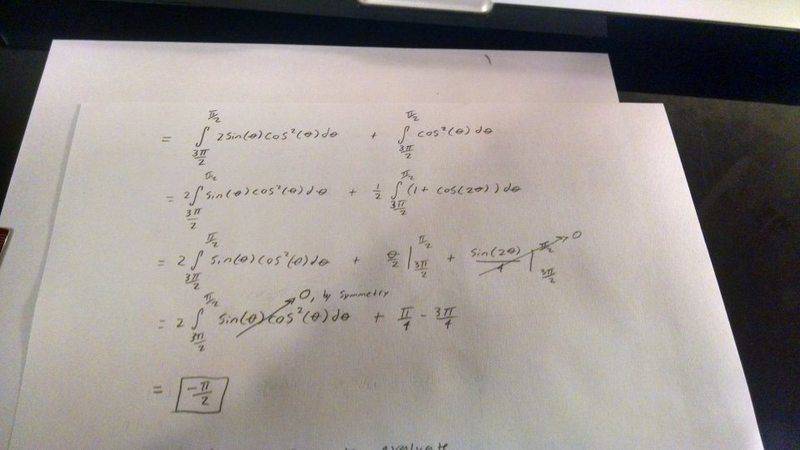 = ∫_{3π/2}^{π/2} 2sin(θ)cos²(θ)dθ + ∫_{3π/2}^{π/2} cos²(θ)dθ
= 2∫_{3π/2}^{π/2} sin(θ)cos²(θ)dθ + 1/2 ∫_{3π/2}^{π/2} (1 + cos(2θ))dθ
= 2∫_{3π/2}^{π/2} sin(θ)cos²(θ)dθ + θ/2 |_{3π/2}^{π/2} + sin(2θ)/4 |_{3π/2}^{π/2} → 0
= 2∫_{3π/2}^{π/2} sin(θ)cos²(θ)dθ → 0, by symmetry + π/4 - 3π/4
= -π/2
evaluate